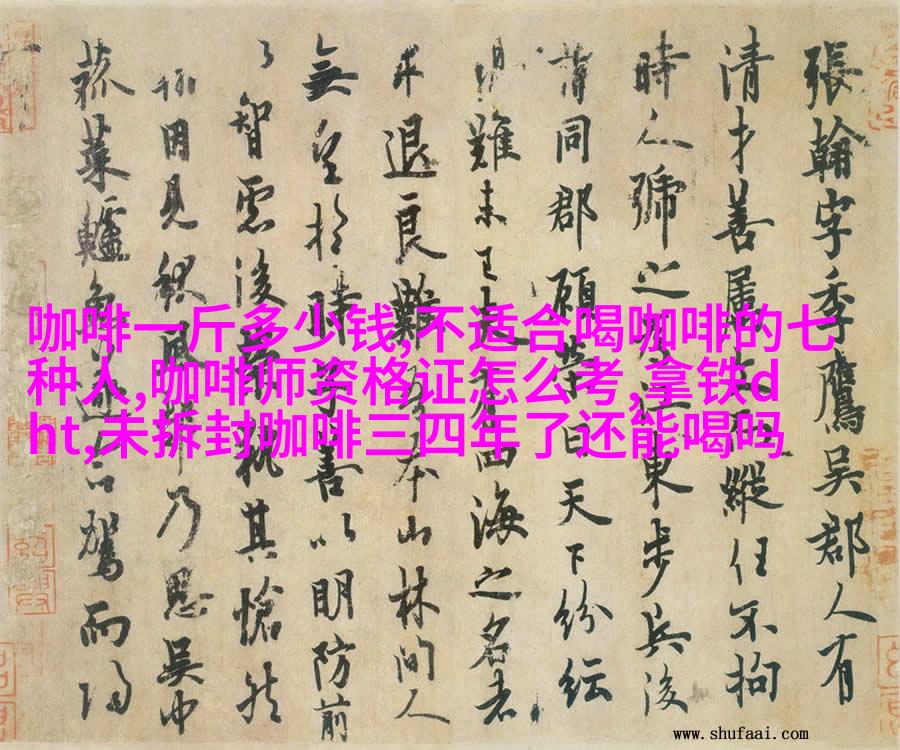 咖啡一斤多少钱,不适合喝咖啡的七
种人,咖啡师资格证怎么考,拿铁d
ht,未拆封咖啡三四年了还能喝吗
張翰字季鷹吳郡人有
清才善屬文而縱任不拘
時人號之江東步兵後
同郡顧榮曰天下紛紜
難未已夫有四海之名者
求退良難吾本山林間人
無望於時子善以明防前
以智慮後榮執其愴然
翰因見秋風起乃思吳中
菰菜鱸魚遂命駕而歸
www.shufaai.com